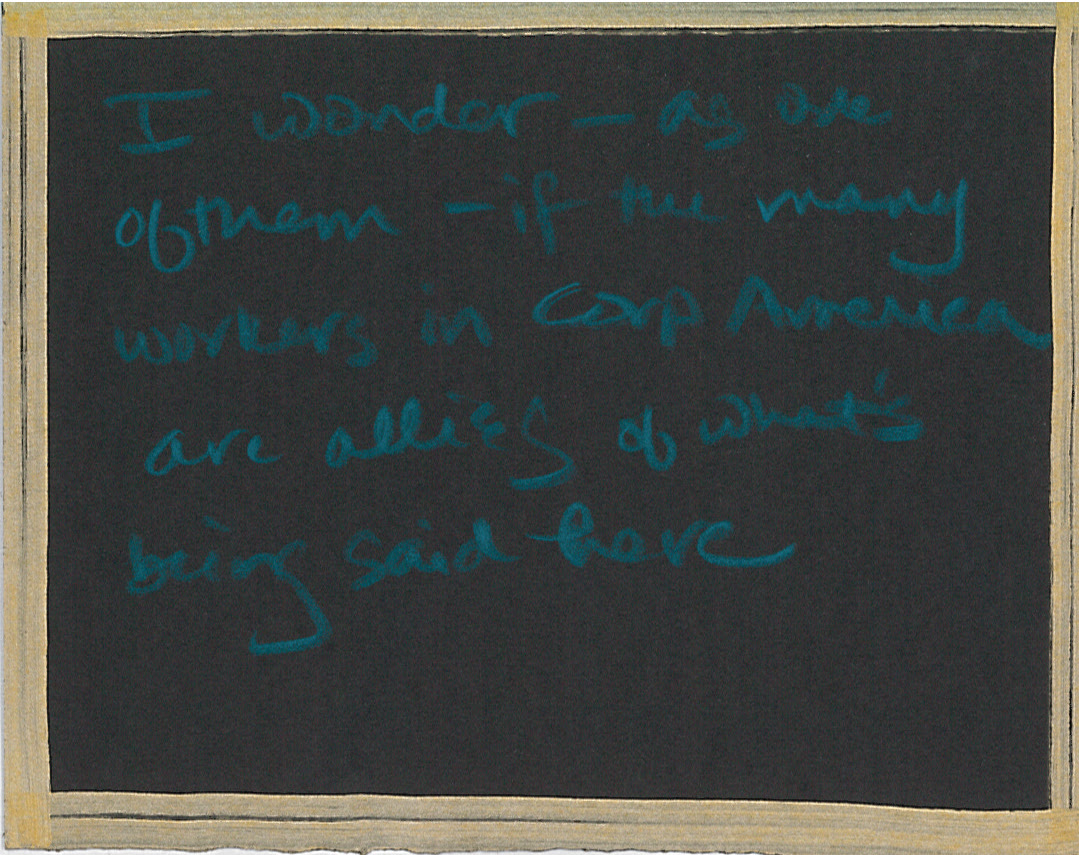 I wonder – as one
of them – if the many
workers in Corp America
are allies of what's
being said here